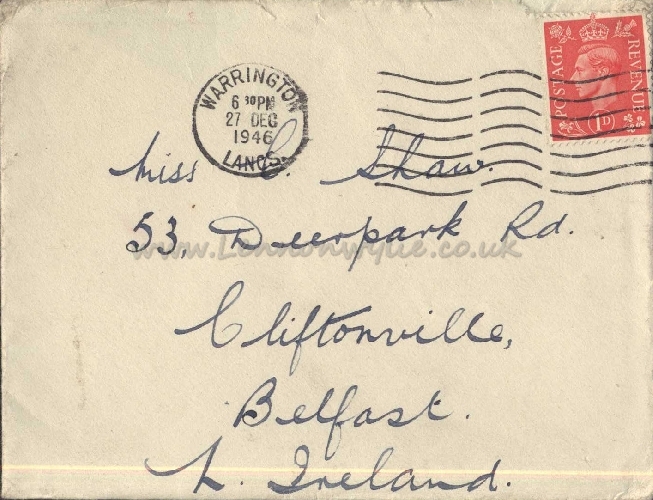 POSTAGE
REVENUE
1D
WARRINGTON
6 30PM
27 DEC
1946
LANCS.
Miss C. Shaw.
53, Deerpark Rd.
www.Lennonwylie.co.uk
Cliftonville,
Belfast.
N. Ireland.